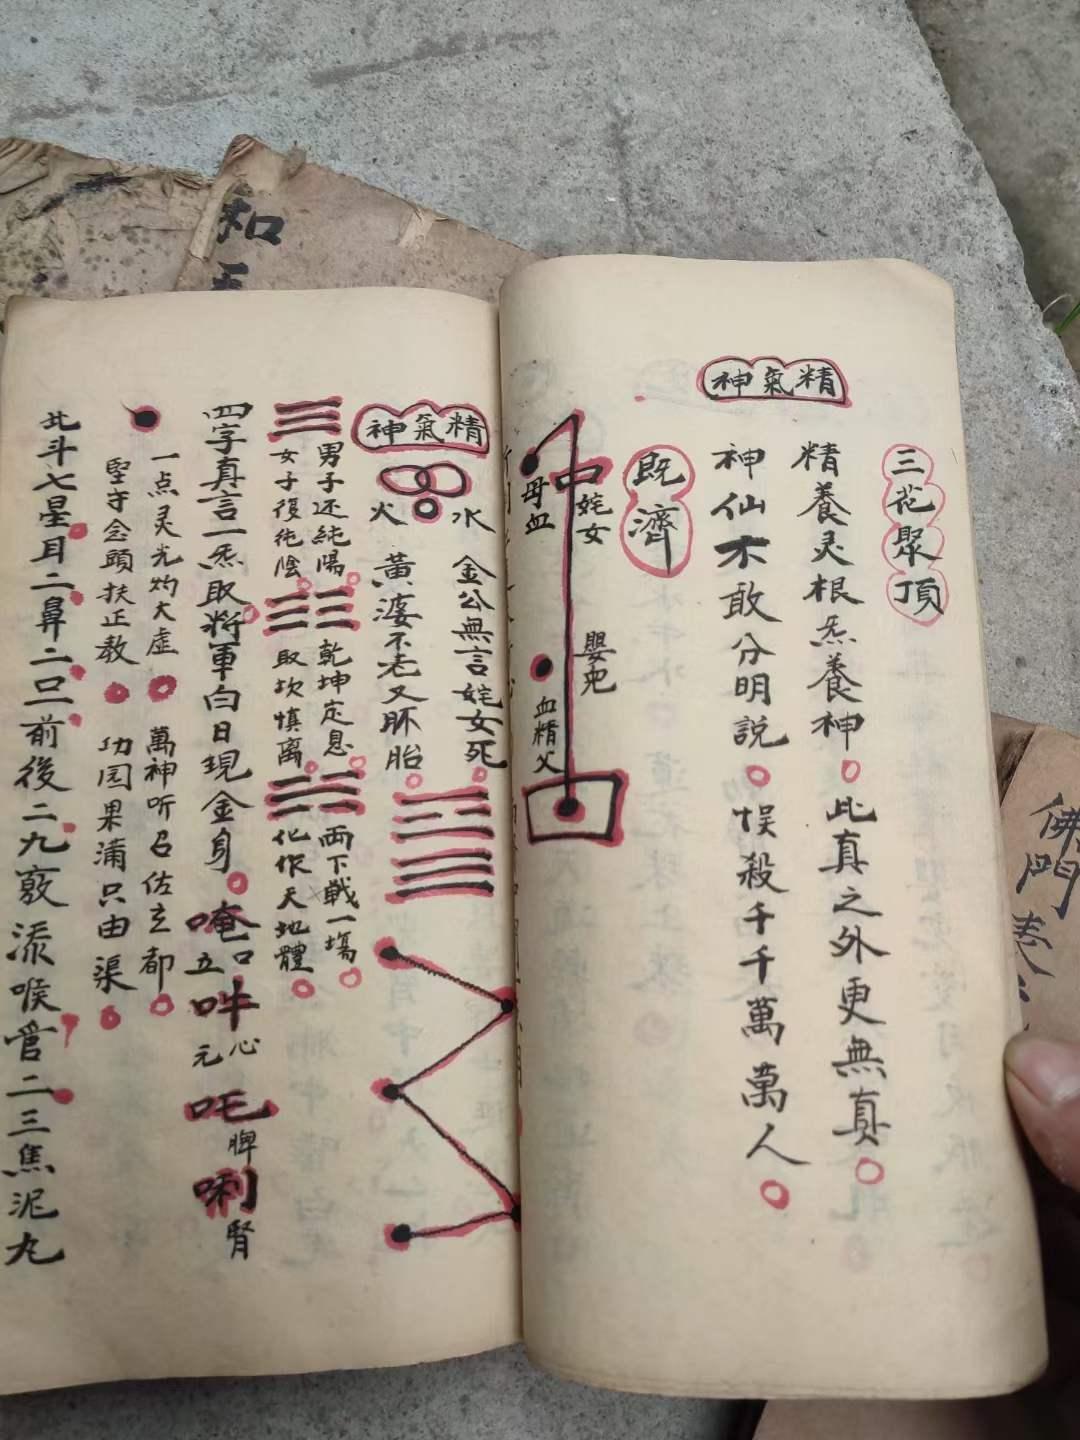 精氣神
三花聚頂
精養灵根炁養神此真之外更無真
神仙不敢分明説悮殺千千萬萬人
既濟
姹女
嬰兒
母血
血精父
精氣神
水
火
金公無言姹女死
黃婆不老又胚胎
男子还純陽
乾坤定息
兩下戰一塲
女子復純陰
取坎慎離
化作天地體
四字真言一炁取將軍白日現金身
唵口
吽心
吒脾
唎腎
立
元
一点灵光灼大虚
萬神听召佐玄都
堅守念頭扶正教
功园果蒲只由渠
北斗七星耳二鼻二口一前後二九竅添喉官二三焦泥丸
和
佛門